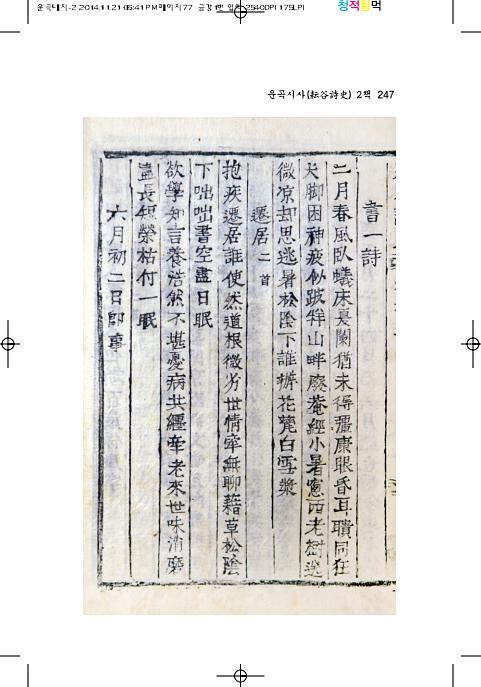 운곡시사-2 2014.11.21 05:41 PM 페이지 77
2540DPI 175LPI
청적황먹
운곡시사(耘谷詩史) 2책 247
書一詩
二月春風臥蟻床夏闌猶未得彊康眼昏耳聵同狂
犬脚困神疲似跛牂山畔廢菴經小暑窓西老樹迎
微凉却思逃暑松陰下誰擀花甆白雪漿
遷居二首
抱疾遷居誰使然道根微劣世情牽無聊藉草松陰
下咄咄書空盡日眠
欲學知言養浩然不堪憂病共纏牽老來世味消磨
盡長短榮枯付一眠
六月初二日卽事